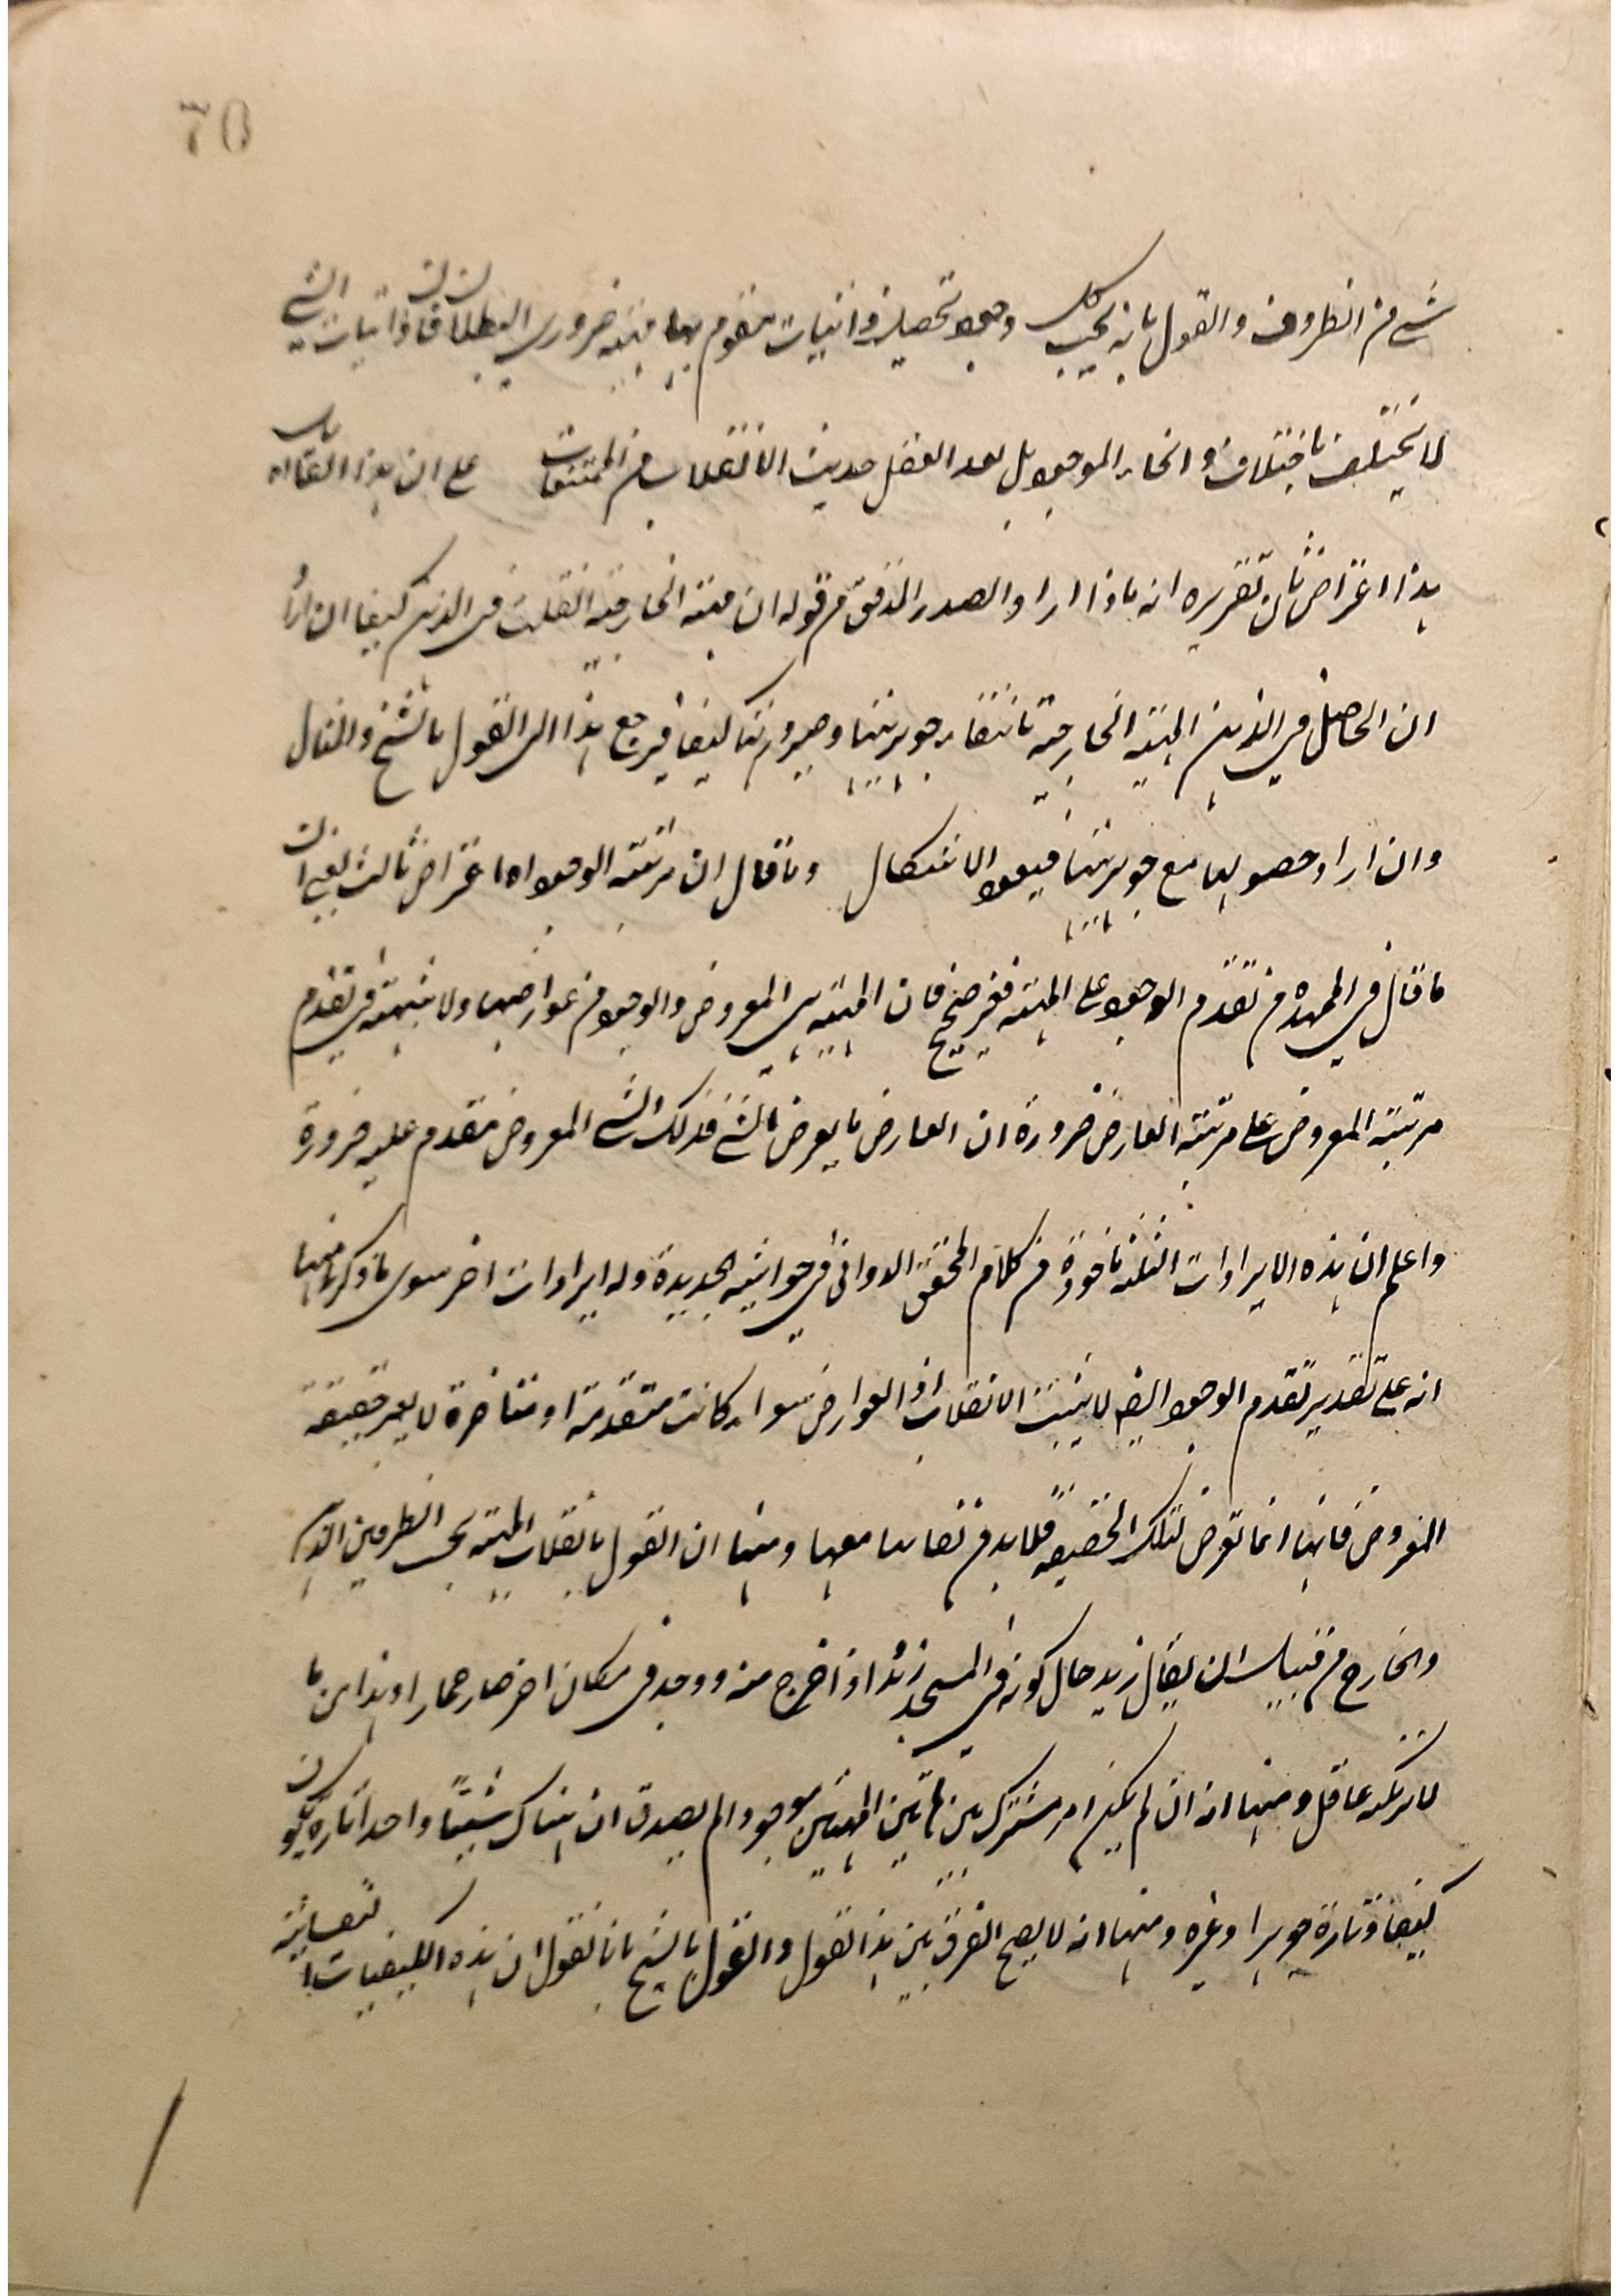 70
شيء من الظروف والقول بانه بحسب كل وجود تحصل ذاتيات يتقوم بها مهية ضروري البطلان فان ذاتيات الشيء
لا تختلف باختلاف انحاء الوجود بل يعد العقل حديث الانقلاب من الممتنعات على ان هذا القائل اه
هذا اعتراض ثان تقريره انه ماذا اراد الصدر المدقق من قوله ان مهية الخارجية انقلبت في الذهن كيفا ان اراد
ان الحاصل في الذهن المهية الخارجية بانتفاء جوهريتها وصيرورتها كيفا فيرجع هذا الى القول بالشبح والمثال
وان اراد حصولها مع جوهريتها فيعود الاشكال وما قال ان مرتبة الوجود اه اعتراض ثالث يعني ان
ما قال في المهده من تقدم الوجود على المهية فغير صحيح فان المهية هي المعروض والوجود من عوارضها ولا شبهة في تقدم
مرتبة المعروض على مرتبة العارض ضرورة ان العارض ما يعرض بالشيء فذلك الشيء المعروض متقدم عليه ضرورة
واعلم ان هذه الايرادات الثلثة ماخوذة من كلام المحقق الدواني في حواشيه الجديدة وله ايرادات اخر سوى ما ذكر منها
انه على تقدير تقدم الوجود ايضا لا يثبت الانقلاب اذ العوارض سواء كانت متقدمة او متاخرة لا يغير حقيقة
المعروض فانها انما تعرض لتلك الحقيقة فلا بد من بقائها معها ومنها ان القول بانقلاب المهية بحسب الظرفين الذهن
والخارج من قبيل ان يقال زيد حال كونه في المسجد زيد اذا خرج منه ووجد في مكان اخر صار حمارا وهذا مما
لا يرتكبه عاقل ومنها انه ان لم يكن امر مشترك بين هاتين المهيتين موجودا لم يصدق ان هناك شيئا واحدا تارة يكون
كيفا وتارة جوهرا وغيره ومنها انه لا يصح الفرق بين هذا القول والقول بالشبح بانا نقول ان هذه الكيفيات النفسانية